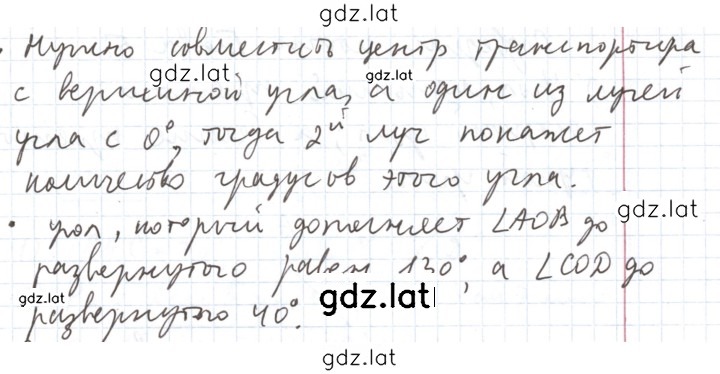 gdz.lat
• Нужно совместить центр транспортира
gdz.lat gdz.lat
с вершиной угла, а один из лучей
угла с 0°, тогда 2й луч покажет
количество градусов этого угла.
gdz.lat
• угол, который дополняет ∠AOB до
развернутого равен 130°, а ∠COD до
gdz.lat gdz.lat
развернутого 40°.
gdz.lat